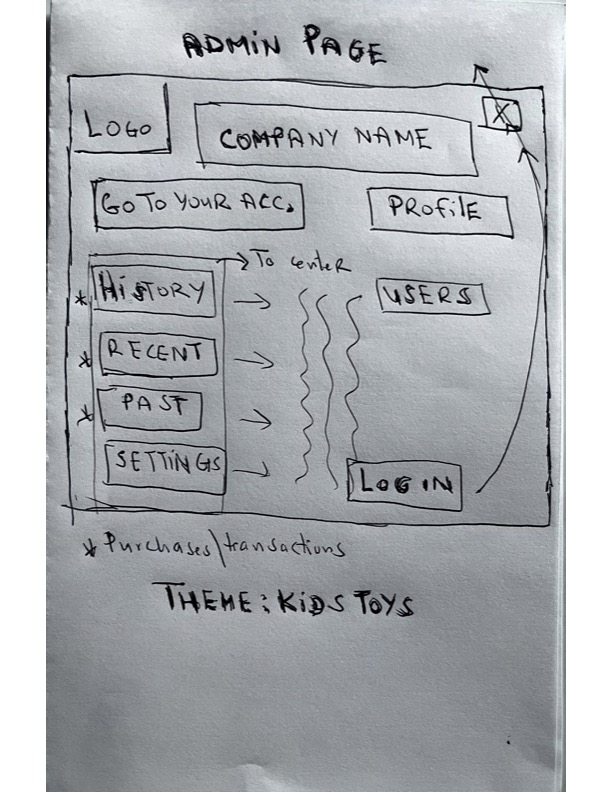 ADMIN PAGE
LOGO
COMPANY NAME
X
GO TO YOUR ACC.
PROFILE
To center
* HISTORY
USERS
* RECENT
* PAST
SETTINGS
LOGIN
* Purchases\transactions
THEME: KIDS TOYS